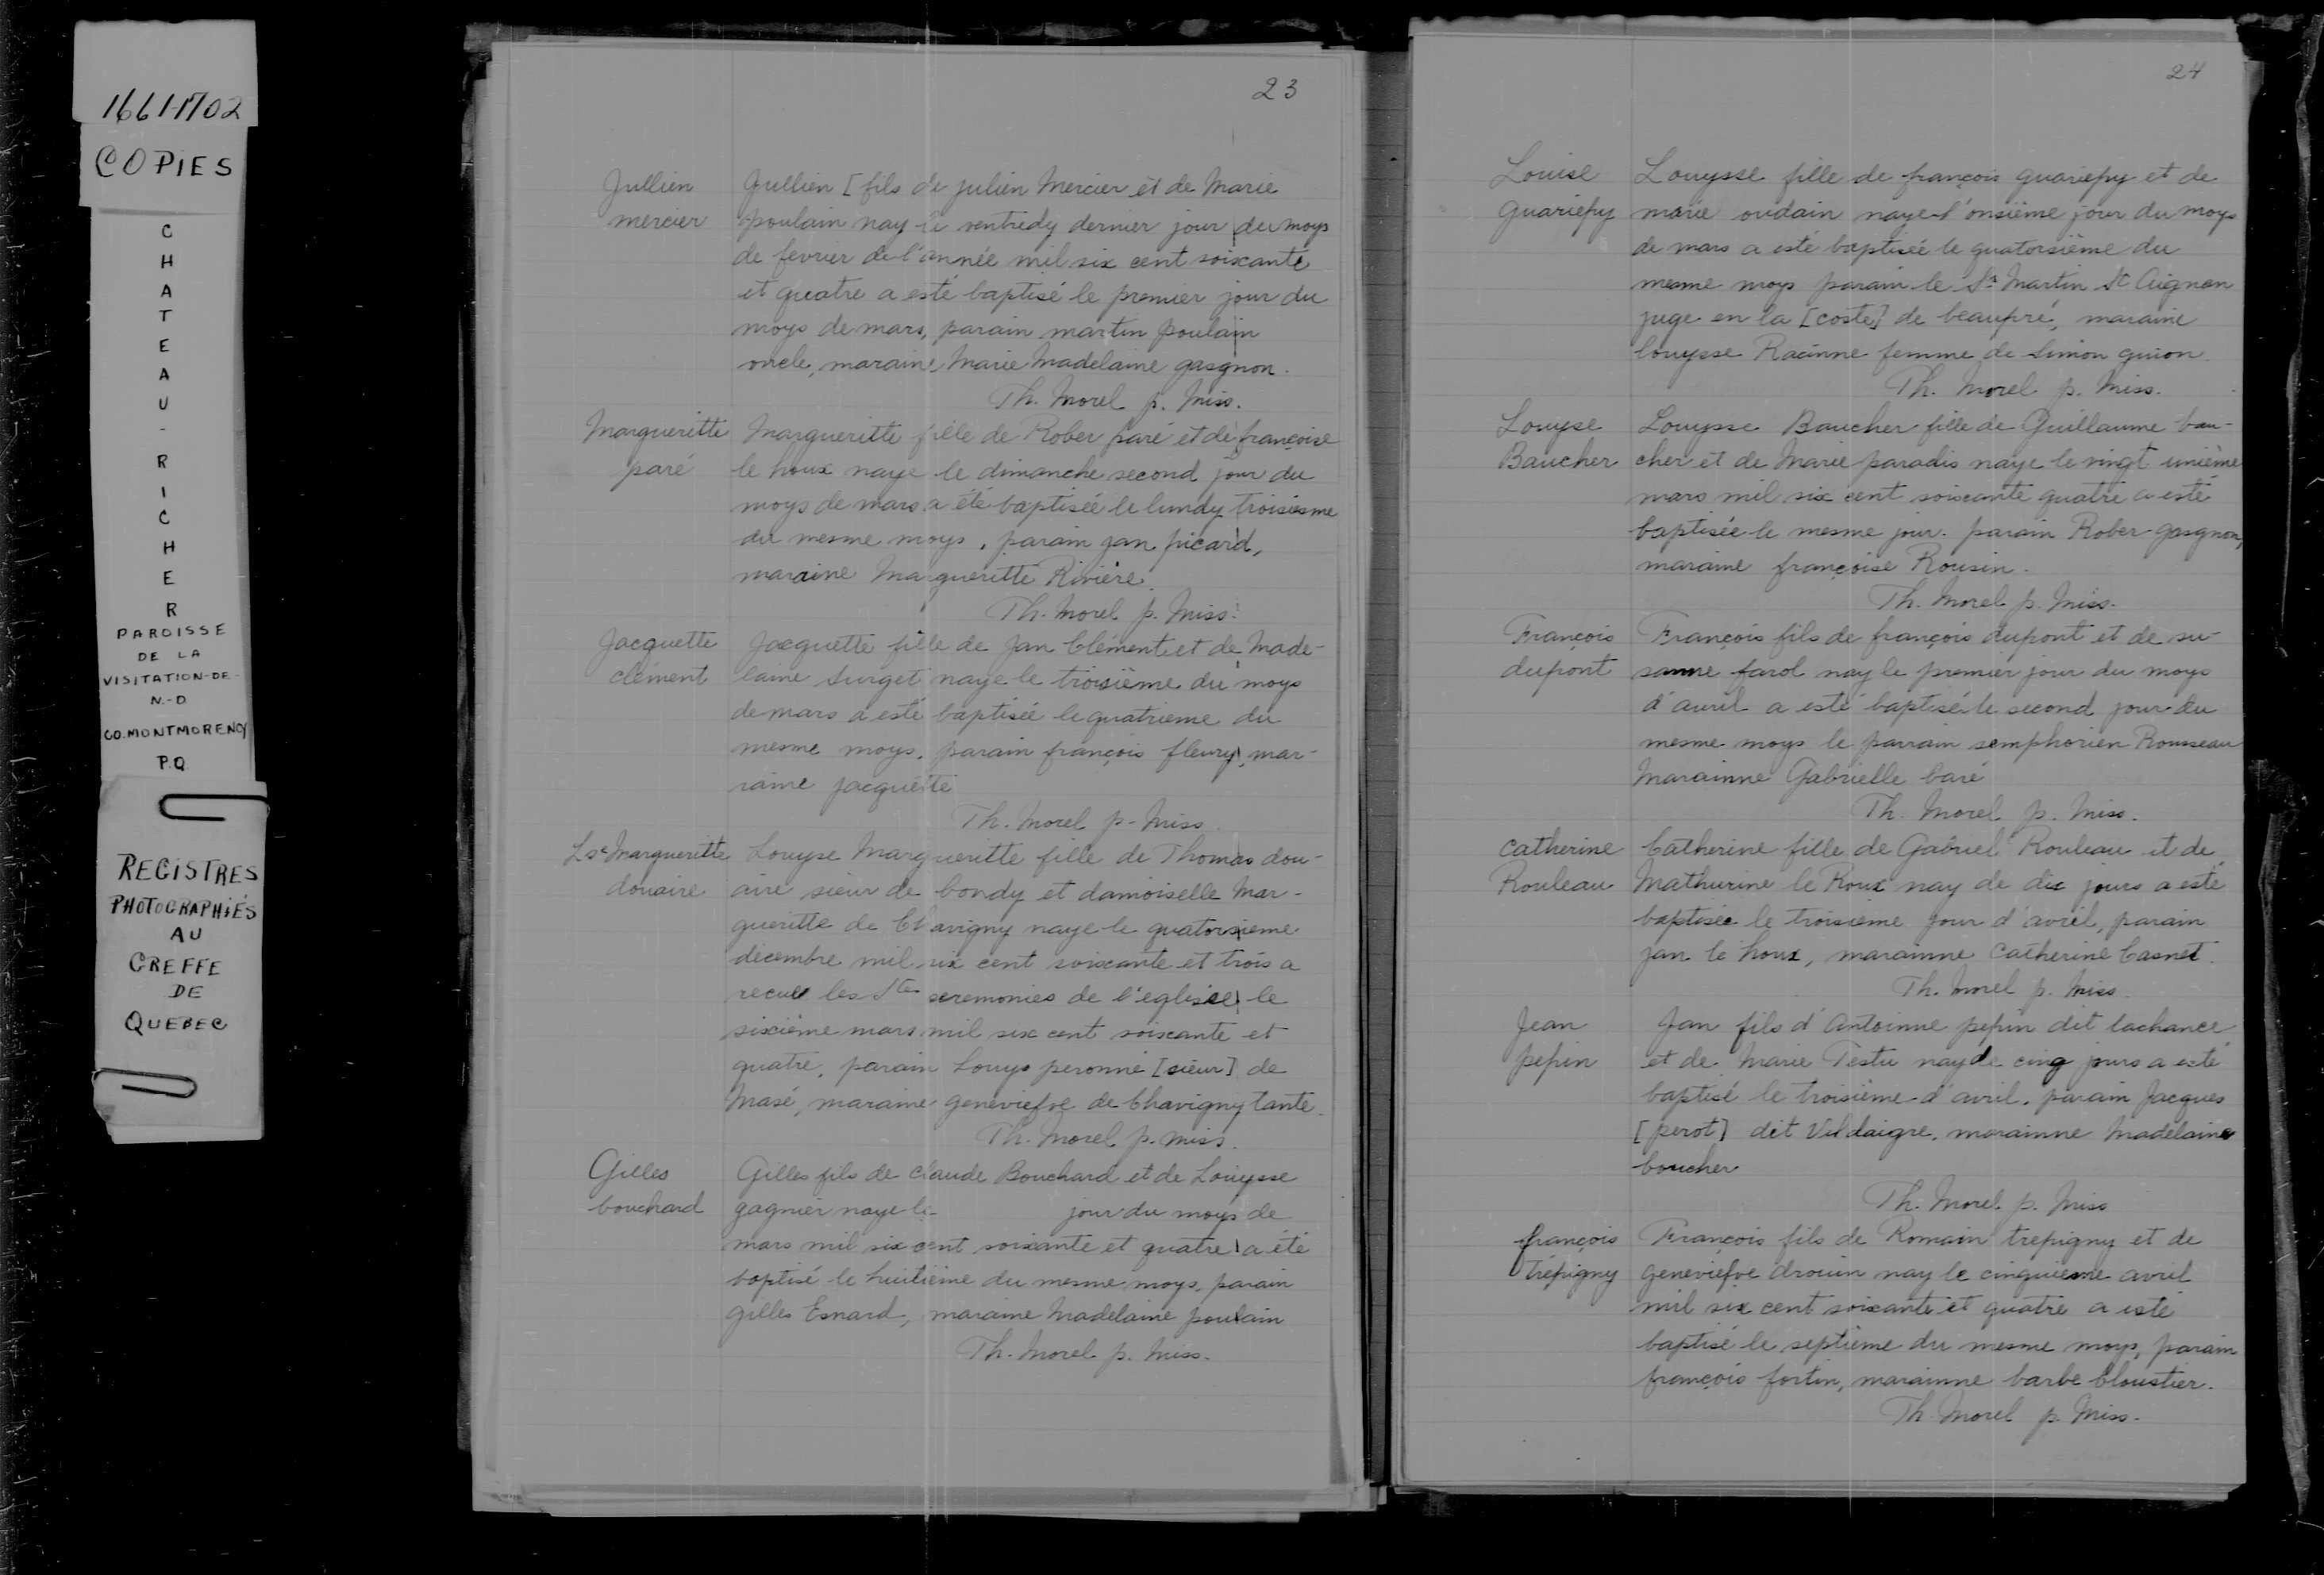 1661-1702
COPIES
CHATEAU-RICHER
PAROISSE
DE LA
VISITATION-DE-
N.-D.
CO. MONTMORENCY
P.Q.
REGISTRES
PHOTOGRAPHIÉS
AU
GREFFE
DE
QUEBEC
23
Jullien
mercier
Jullien [fils de julien Mercier et de Marie
poulain nay le ventredy dernier jour du moys
de fevrier de l'année mil six cent soixante
et quatre a esté baptisé le premier jour du
moys de mars, parain martin poulain
oncle, maraine, Marie Madelaine gasgnon.
Th. Morel p. Miss.
Margueritte
paré
Margueritte fille de Rober paré et de françoise
le houx naye le dimanche second jour du
moys de mars a été baptisée le lundy troisiesme
du mesme moys, parain jan picard,
maraine Margueritte Rivière.
Th. Morel p. Miss.
Jacquette
clément
Jacquette fille de Jan Clément et de Made-
laine Surget naye le troisième du moys
de mars a esté baptisée le quatrieme du
mesme moys, parain françois fleury, mar-
raine jacquette
Th. Morel p. Miss.
Lse Margueritte
douaire
Louyse Margueritte fille de Thomas dou-
aire sieur de bondy et damoiselle Mar-
gueritte de Chavigny naye le quatorsieme
decembre mil six cent soixante et trois a
recue les Stes seremonies de l'eglise le
sixième mars mil six cent soixante et
quatre, parain Louys peronne [sieur] de
Masé, maraine geneviefve de Chavigny tante.
Th. Morel p. miss.
Gilles
bouchard
Gilles fils de claude Bouchard et de Louysse
gagnier naye le jour du moys de
mars mil six cent soixante et quatre a été
baptisé le huitième du mesme moys, parain
gilles Esnard, maraine Madelaine poulain
Th. Morel p. Miss.
24
Louise
guariepy
Louysse fille de françois guariepy et de
marie oudain naye l'onsième jour du moys
de mars a esté baptisée le quatorsième du
mesme moys parain le Sr Martin St Aignan
juge en la [coste] de beaupré, maraine
louysse Racinne femme de Simon guion.
Th. Morel p. Miss.
Louyse
Baucher
Louysse Baucher fille de Guillaume bau-
cher et de Marie paradis naye le vingt unième
mars mil six cent soixante quatre a esté
baptisée le mesme jour. parain Rober gasgnon,
maraine françoise Rousin.
Th. Morel p. Miss.
François
dupont
François fils de françois dupont et de su-
sanne farol nay le premier jour du moys
d'avril a esté baptisé le second jour du
mesme moys le parrain semphorien Rousseau
Marainne Gabrielle baré
Th. Morel p. Miss.
Catherine
Rouleau
Catherine fille de Gabriel Rouleau et de
Mathurine le Roux nay de dix jours a esté
baptisée le troisième jour d'avril, parain
jan le houx, marainne Catherine Casnet.
Th. Morel p. Miss.
Jean
pepin
Jan fils d'Antoinne pepin dit lachance
et de Marie Testu nay de cinq jours a esté
baptisé le troisième d'avril, parain Jacques
[perot] dit Vildaigre, marainne Madelaine
boucher
Th. Morel p. Miss
françois
trépigny
François fils de Romain trepigny et de
geneviefve drouin nay le cinquiesme avril
mil six cent soixante et quatre a esté
baptisé le septième du mesme moys, parain
françois fortin, marainne barbe Cloustier.
Th. Morel p. Miss.